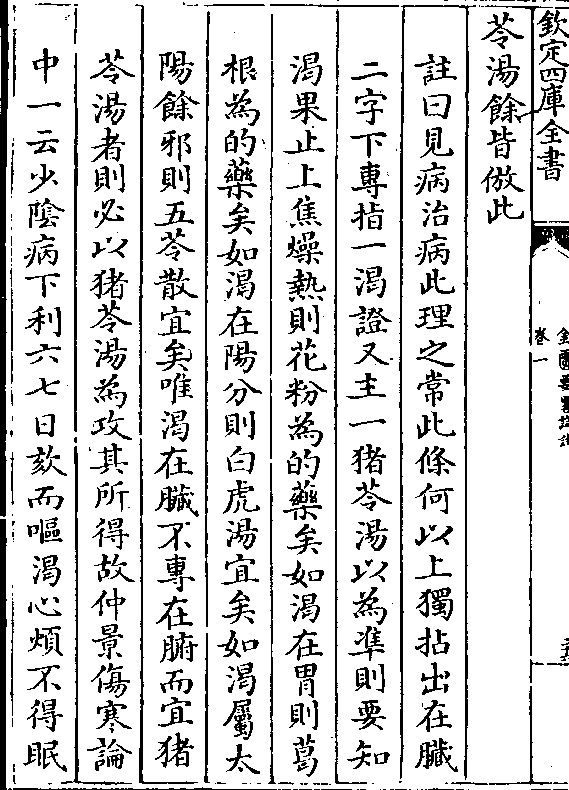 欽定四庫全書
卷一
苓湯餘皆倣此
註曰見病治病此理之常此條何以上獨拈出在臟
二字下專指一渴證又主一猪苓湯以為凖則要知
渴果止上焦燥熱則花粉為的藥矣如渴在胃則葛
根為的藥矣如渴在陽分則白虎湯宜矣如渴屬太
陽餘邪則五苓散宜矣唯渴在臟不專在腑而宜猪
苓湯者則必以猪苓湯為攻其所得故仲景傷寒論
中一云少隂病下利六七日欬而嘔渴心煩不得眠